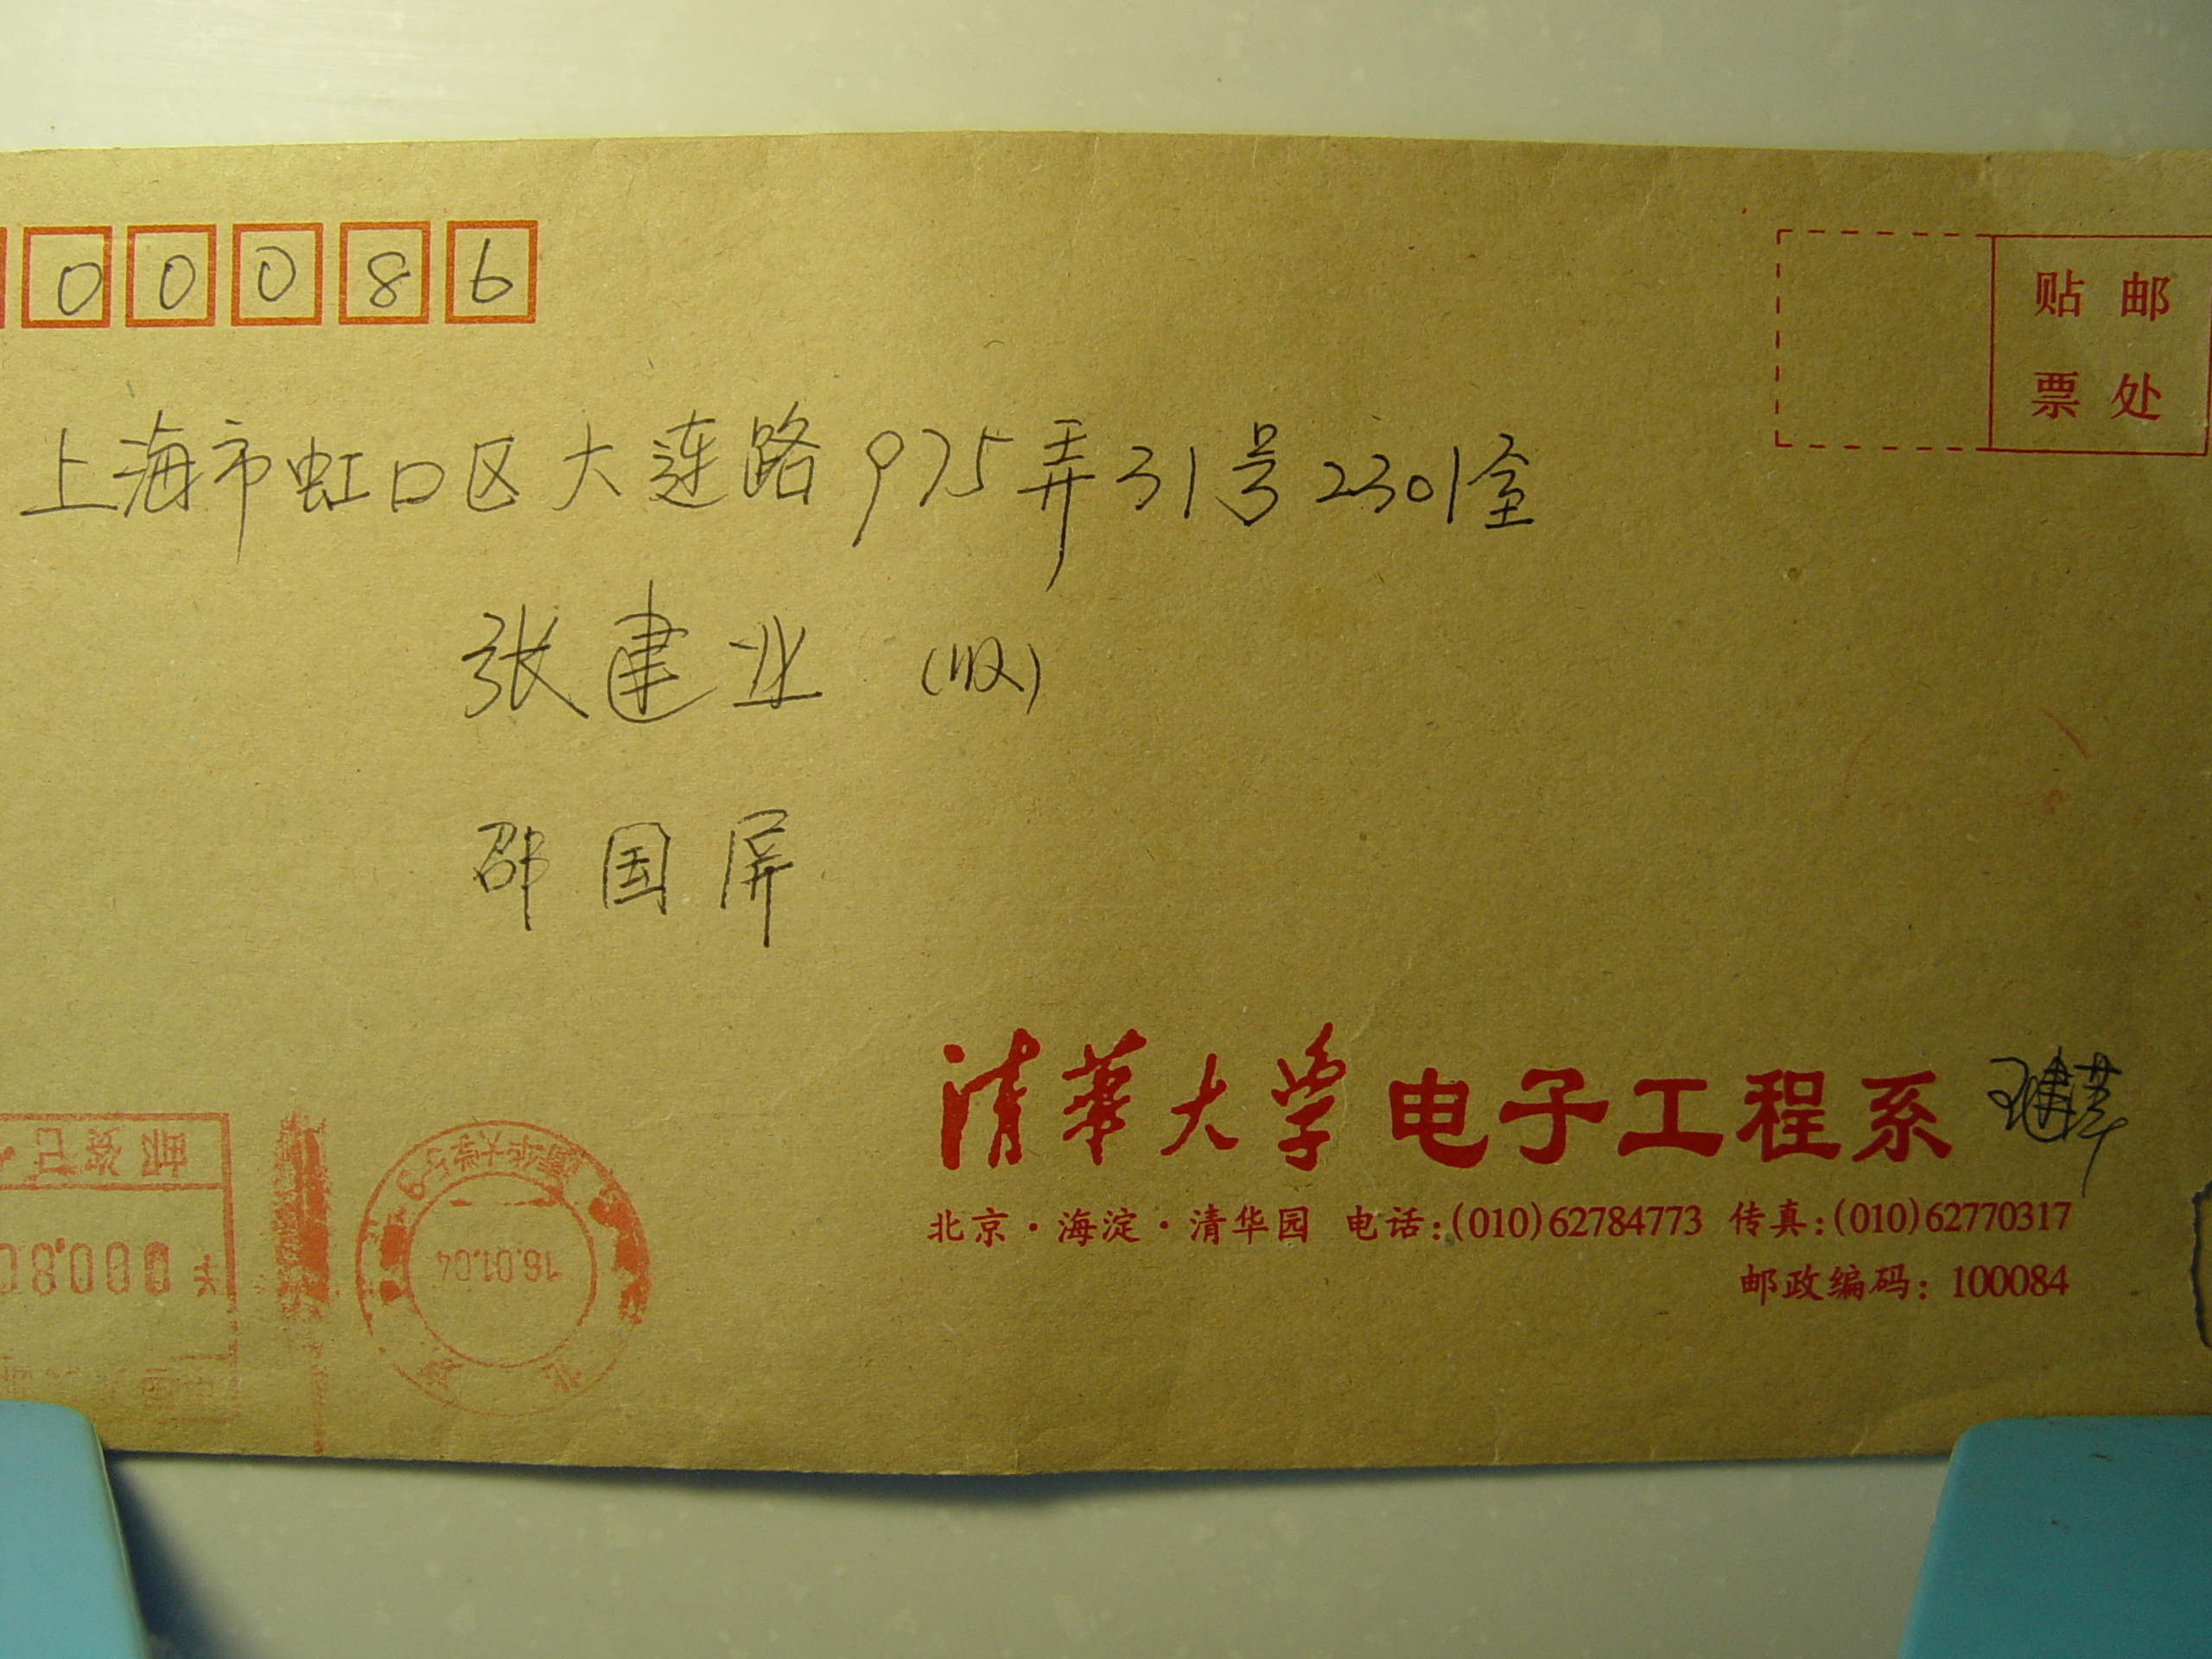 00086
贴邮
票处
上海市虹口区大连路975弄31号2301室
张建业（收）
邵国屏
清華大学电子工程系
北京·海淀·清华园 电话：(010)62784773 传真：(010)62770317
邮政编码：100084
邮资已
000.80
清华大学
16.01.04
北京